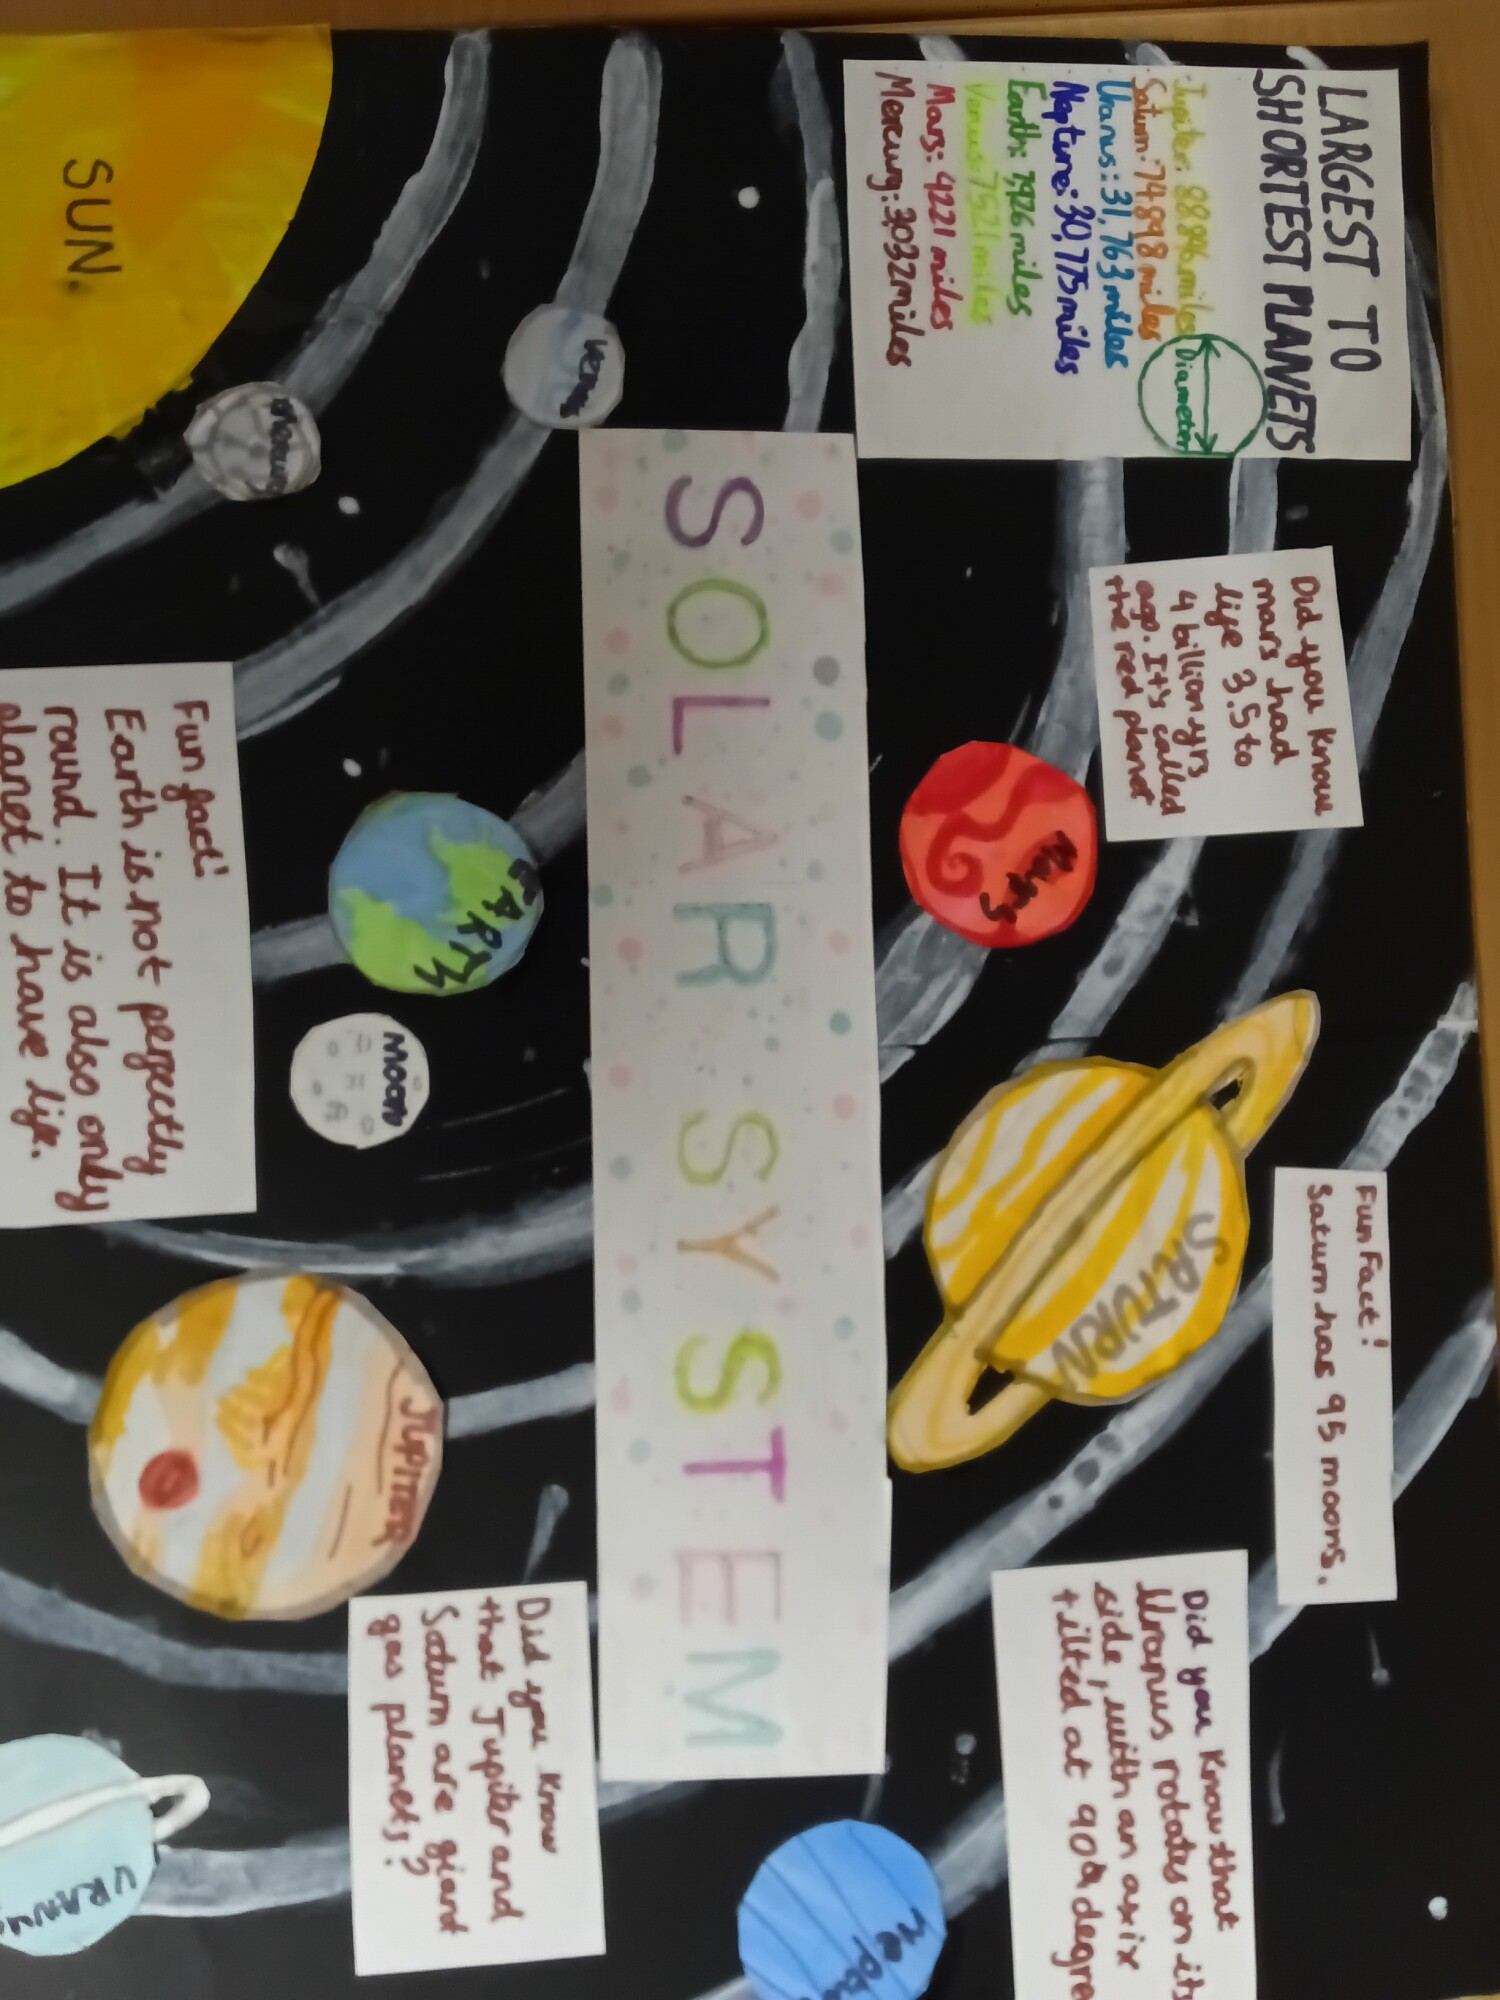 LARGEST TO
SHORTEST PLANETS
Jupiter: 88,846 miles
Saturn: 74,898 miles
Uranus: 31,763 miles
Neptune: 30,775 miles
Earth: 7,926 miles
Venus: 7521 miles
Mars: 4221 miles
Mercury: 3032 miles
Diameter
Did you know
mars had
life 3.5 to
4 billion yrs
ago. It's called
the red planet
Fun Fact!
Saturn has 95 moons.
Did you know that
Uranus rotates on its
side, with an axix
tilted at 90
Mars
SATURN
SOLAR SYSTEM
Neptu
Venus
Mercury
EARTH
MOON
JUPITER
Did you know
that Jupiter and
Saturn are giant
gas planets?
SUN.
Fun fact!
Earth is not perfectly
round. It is also only
planet to have life.
URANUS